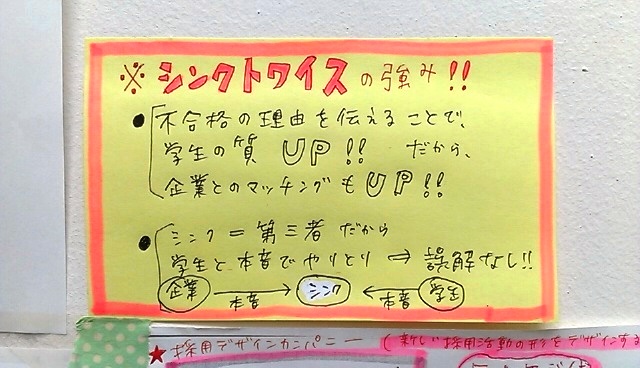 ※ シンクトワイスの強み!!
● 不合格の理由を伝えることで、
学生の質 UP!! だから、
企業とのマッチングもUP!!
● シンク = 第三者だから
学生と本音でやりとり ⇒ 誤解なし!!
企業 本音→ シンク ←本音 学生
★ 採用デザインカンパニー (新しい採用活動の形をデザインする